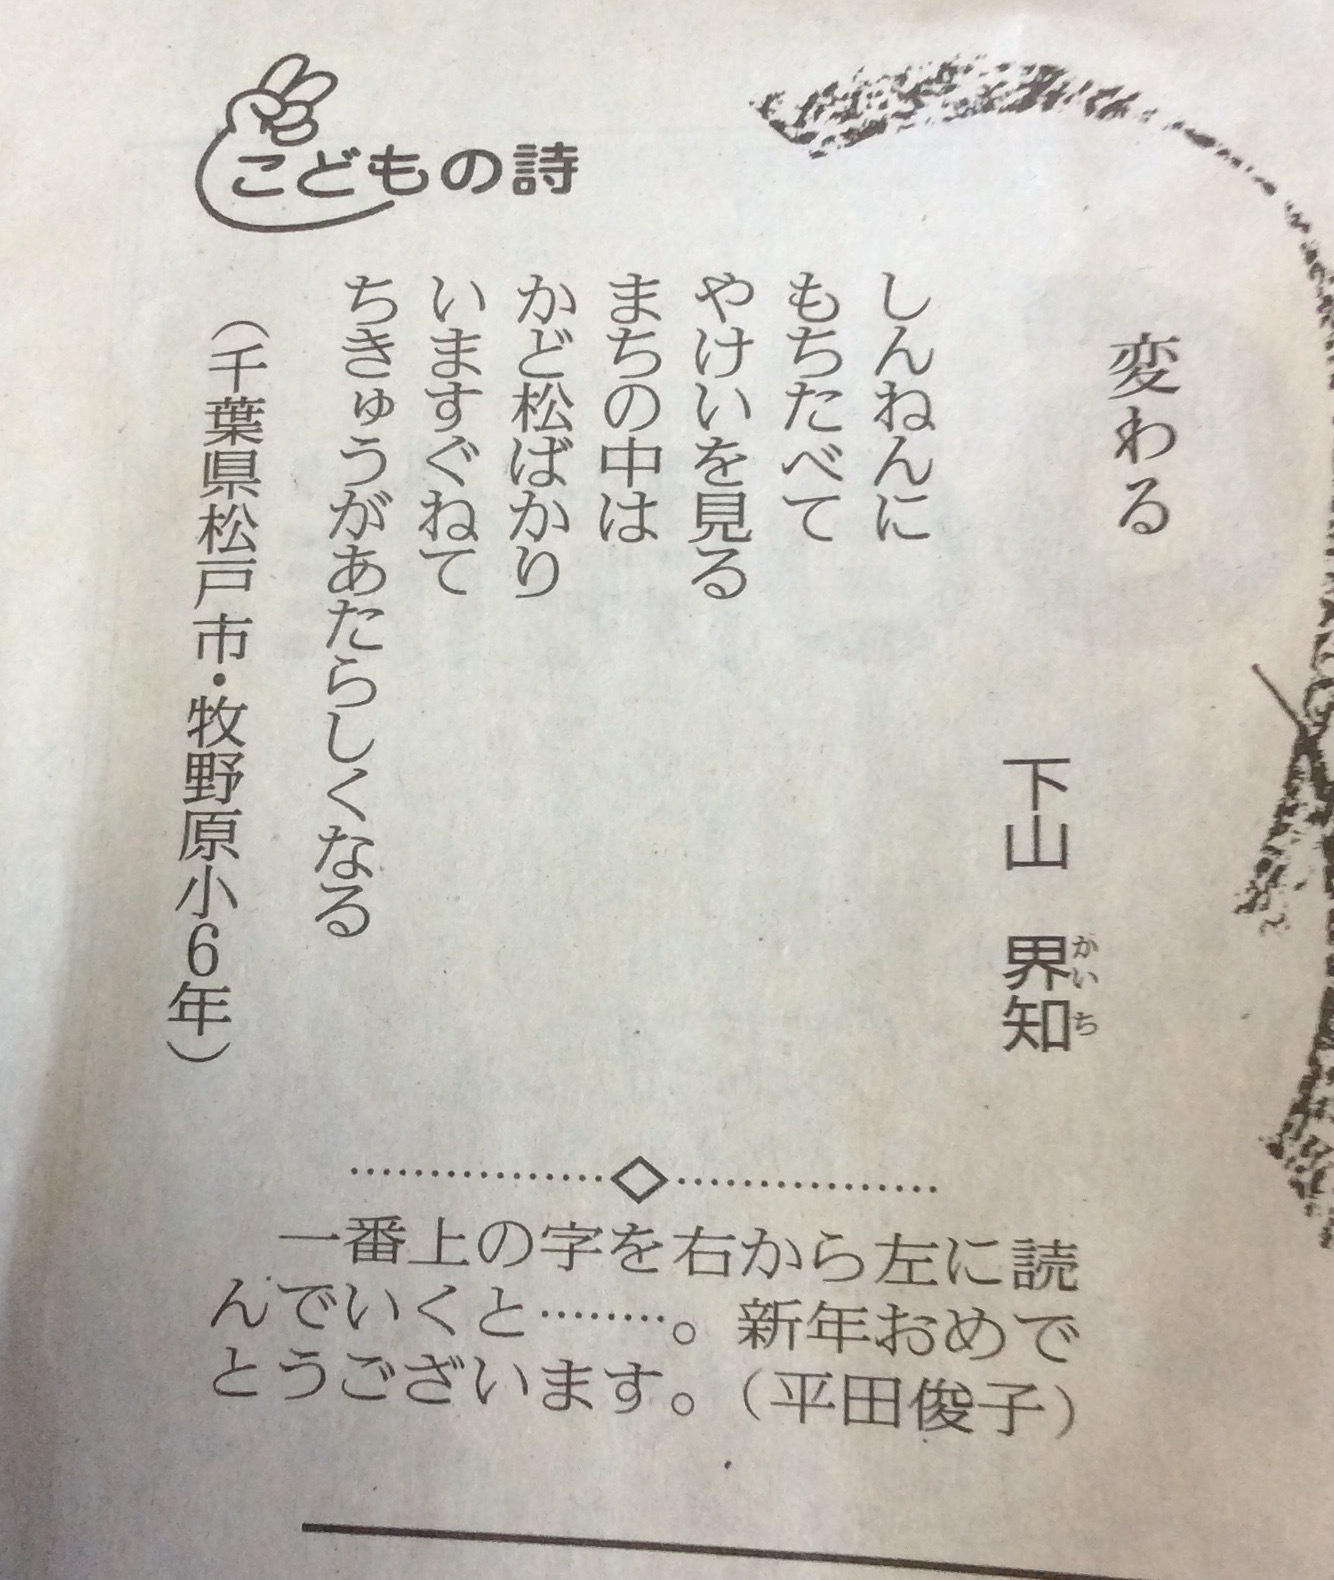 こどもの詩
変わる
下山 界知
かいち
しんねんに
もちたべて
やけいを見る
まちの中は
かど松ばかり
いますぐねて
ちきゅうがあたらしくなる
（千葉県松戸市・牧野原小６年）
一番上の字を右から左に読
んでいくと………。新年おめで
とうございます。（平田俊子）